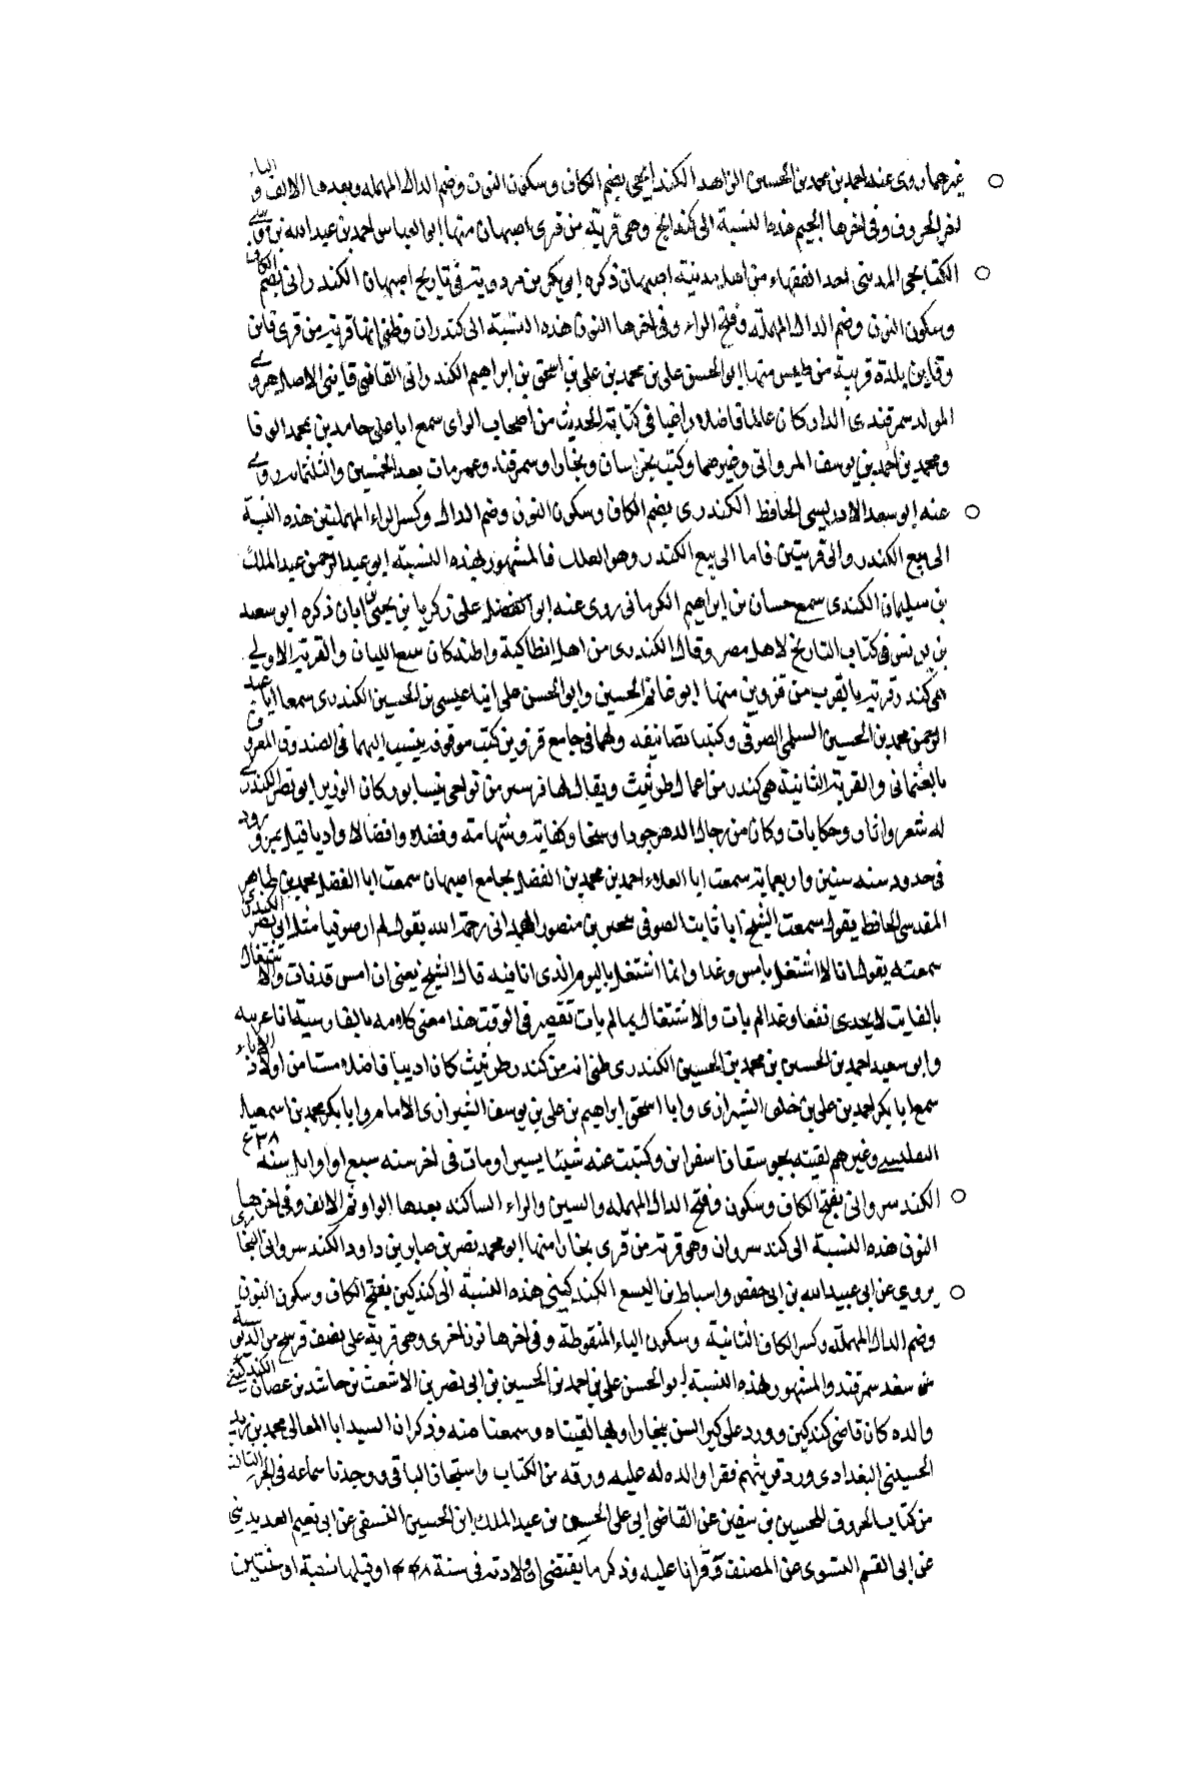 غيرهما روى عنه احمد بن محمد بن الحسين الزاهد الكندايجي بضم الكاف وسكون النون وضم الدال المهملة وبعدها الالف و الياء
اخر الحروف وفي اخرها الجيم هذه النسبة الى كندايج وهي قرية من قرى اصبهان منها ابو العباس احمد بن عبد الله بن
الكندايجي المديني احد الفقهاء من اهل مدينة اصبهان ذكره ابو بكر بن مردويه في تاريخ اصبهان الكندراني بضم الكاف
وسكون النون وضم الدال المهملة وفتح الراء وفي اخرها النون هذه النسبة الى كندران وظني انها قرية من قرى قاين
وقاين بلدة قريبة من طبس منها ابو الحسن علي بن محمد بن علي بن اسحق بن ابراهيم الكندراني القاضي قايني الاصل هروي
المولد سمرقندي الدار كان عالما فاضلا راغبا في كتابة الحديث من اصحاب الراى سمع ابا علي حامد بن محمد الرفا
ومحمد بن احمد بن يوسف المرواني وغيرهما وكتب بخراسان وبخارا وسمرقند وعمر مات بعد الخمسين والثلثماية روى
عنه ابو سعد الادريسي الحافظ الكندري بضم الكاف وسكون النون وضم الدال وكسر الراء المهملتين هذه النسبة
الى بيع الكندر والى قريتين فاما الى بيع الكندر وهو العلك فالمشهور بهذه النسبة ابو عبد الرحمن عبد الملك
بن سليمان الكندي سمع حسان بن ابراهيم الكرماني روى عنه ابو الفضل علي زكريا بن يحيى بن ابان ذكره ابو سعيد
بن يونس في كتاب التاريخ لاهل مصر وقال الكندري من اهل انطاكية واظنه كان يبيع اللبان والقرية الاولى
هي كندر قرية بالقرب من قزوين منها ابو غانم الحسين وابو الحسن علي ابنا عيسى بن الحسين الكندري سمعا ابا عبد
الرحمن محمد بن الحسين السلمي الصوفي وكتبا تصانيفه ولهما في جامع قزوين كتب موقوفة ينسب اليهما في الصندوق المعروف
بالعثماني والقرية الثانية هي كندر من اعمال طريثيث ويقال لها من نواحي نيسابور وكان الوزير ابو نصر الكندري
له شعر واثار وحكايات وكان من رجال الدهر جودا وسخا وكفاية وشهامة وفضلا وافضالا وادبا قتل بمرو رود
في حدود سنه ستين واربعماية سمعت ابا العلاء احمد بن محمد بن الفضل بجامع اصبهان سمعت ابا الفضل محمد بن طاهر
المقدسي الحافظ يقول سمعت الشيخ ابا ثابت الصوفي بن منصور الهمداني رحمة الله يقول لم ار صوفيا مثل ابي نصر الكندري
سمعته يقول انا لا اشتغل بامس وغدا وانما اشتغل باليوم الذي انا فيه قال الشيخ يعني ان امس قد فات والاشتغال
بالفايت لا يجدي نفعا وغدا لم يات والاشتغال بما لم يات تقصير في الوقت هذا معنى كلامه بالفارسية انا عربيه
وابو سعيد احمد بن الحسين بن محمد بن الحسين الكندري ظني انه من كندر طريثيث كان اديبا فاضلا مسنا من اولاد الادباء
سمع ابا بكر احمد بن علي بن خلف الشيرازي وابا اسحق ابراهيم بن علي بن يوسف الشيرازي الامام وابا بكر محمد بن اسمعيل
التفليسي وغيرهم لقيته بجوسقان اسفراين وكتبت عنه شيئا يسيرا ومات في اخر سنه سبع او اوايل سنه
الكندسرواني بفتح الكاف وسكون وفتح الدال المهمله والسين والراء الساكنه بعدها الواو ثم الالف وفي اخرها
النون هذه النسبة الى كندسروان وهي قرية من قرى بخارا منها ابو محمد نصر بن صابر بن داود الكندسرواني البخاري
يروي عن ابي عبيد الله بن ابي حفص واسباط بن اليسع الكندكيني هذه النسبة الى كندكين بفتح الكاف وسكون النون
وضم الدال المهملة وكسر الكاف الثانية وسكون الياء المنقوطة وفي اخرها نون اخرى وهي قرية على نصف فرسخ من الدبوسية
من سغد سمرقند والمشهور بهذه النسبة ابو الحسن علي بن احمد بن الحسين بن ابي نصر بن الاشعث بن حاشد بن عصان الكندكيني
والده كان قاضي كندكين وورد على كبر السن بخارا وبها لقيناه وسمعنا منه وذكر ان السيد ابا المعالي محمد بن زيد
الحسيني البغدادي ورد قريتهم فقرا والده له عليه ورقه من الكتاب واستجاز الباقي ووجدنا سماعه في الجزء الثالث
من كتاب الحروف للحسين بن سفين عن القاضي ابي علي الحسين بن عبد الملك بن الحسين النسفي عن ابي نعيم
عن ابي القسم النسوي عن المصنف قرانا عليه وذكر ما يقتضي ان ولادته في سنة او قبلها بسنة او سنتين